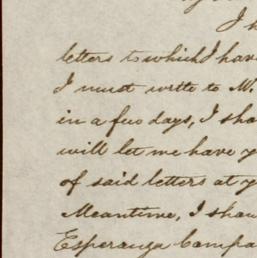 I
letters to which I have
I must write to M.
in a few days, I sho
will let me have y
of said letters at y
Meantime, I shaw
Esperanza Compa